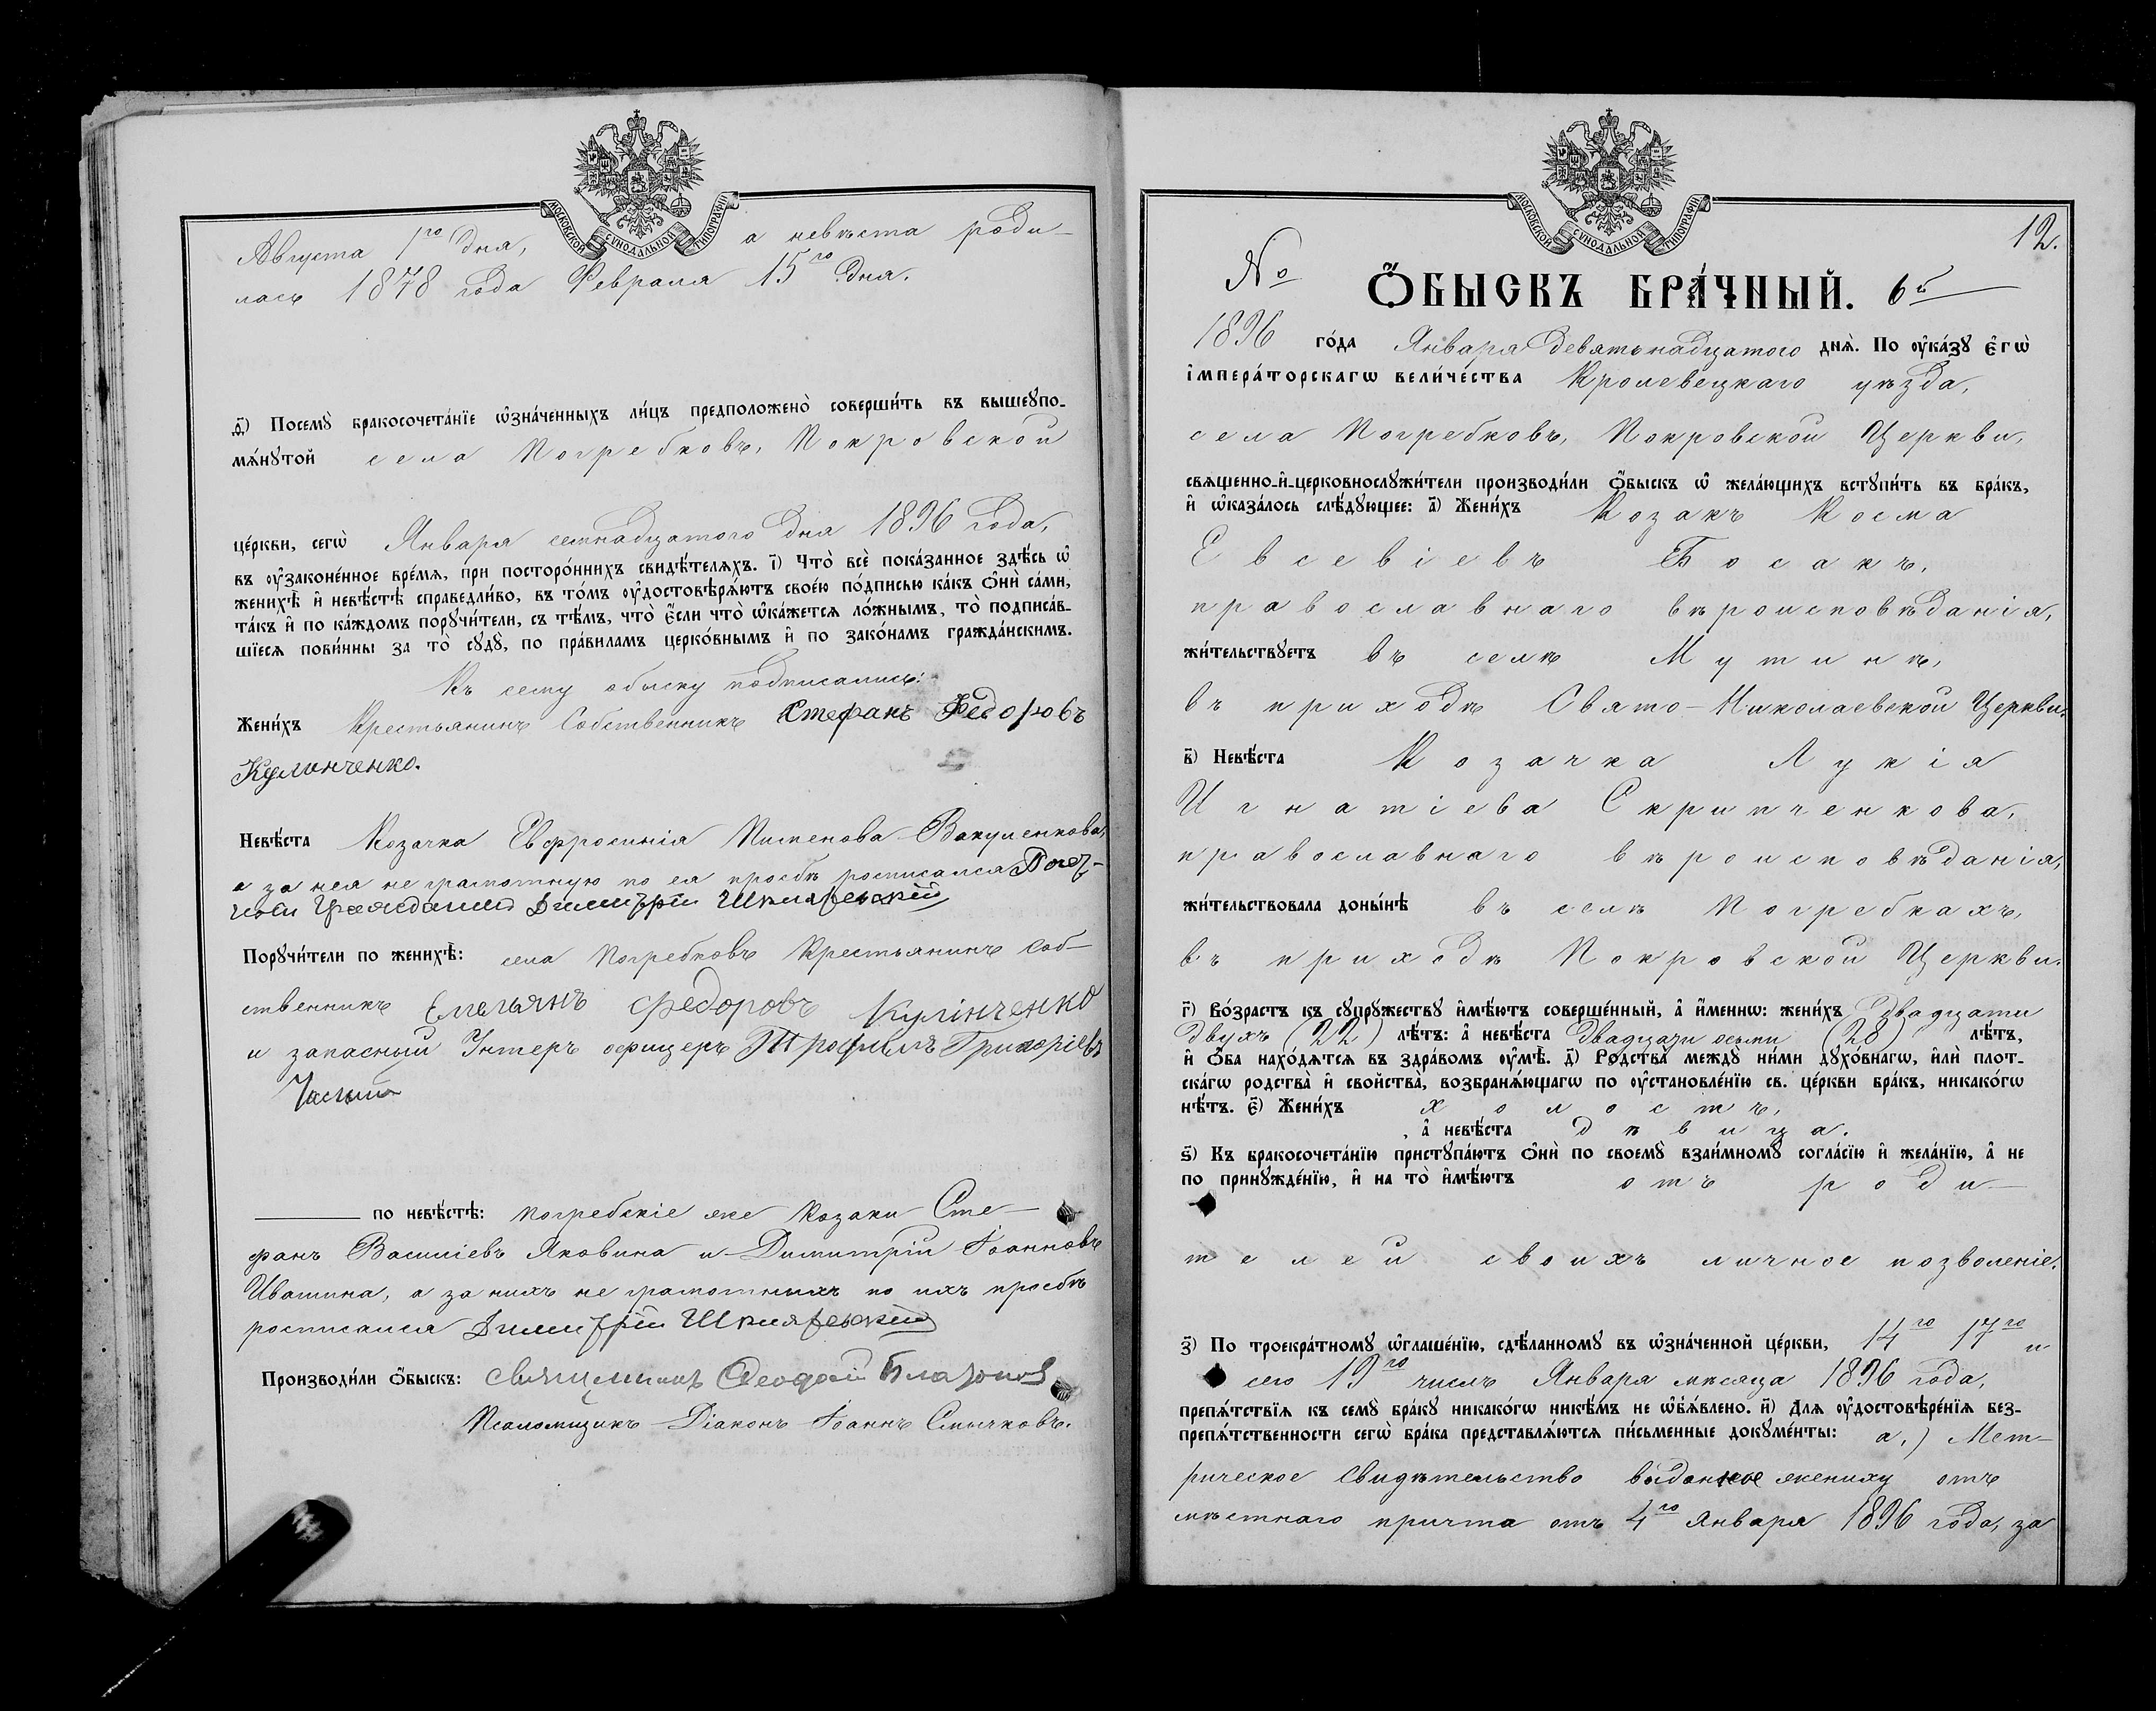 МОСКОВСКОЙ СѴНОДАЛЬНОЙ ТИПОГРАФІИ
Августа 1го дня, а невѣста роди-
лась 1878 года Февраля 15го дня.
д҃) Посемꙋ̀ бракосочета́нїе ѡ҆зна́ченныхъ ли́цъ предположено̀ соверши́ть въ вышеꙋпо-
мѧ́нꙋтой села Погребковъ, Покровской
це́ркви, сегѡ̀ Января семнадцатого дня 1896 года,
въ ᲂу҆законе́нное вре́мѧ, при посторо́ннихъ свидѣ́телѧхъ. і҃) Что̀ всѐ пока́занное здѣ́сь ѡ҆
женихѣ̀ и҆ невѣ́стѣ справедли́во, въ то́мъ ᲂу҆достовѣрѧ́ютъ свое́ю по́дписью ка́къ ѻ҆нѝ са́ми,
та́къ и҆ по ка́ждомъ порꙋчи́тели, съ тѣ́мъ, что̀ є҆́сли что̀ ѡ҆ка́жетсѧ ло́жнымъ, то̀ подписа́в-
шїесѧ пови́нны за то̀ сꙋдꙋ̀, по пра́виламъ церко́внымъ и҆ по зако́намъ гражда́нскимъ.
Къ сему обыску подписались:
Жени́хъ Крестьянинъ Собственникъ Стефанъ Федоровъ
Кулинченко.
Невѣ́ста Козачка Евфросинія Пименова Вакуленкова,
а за нея не грамотную по ея просьбѣ росписался Почет-
ный Гражданинъ Димитрій Шкляревскій
Порꙋчи́тели по женихѣ̀: села Погребковъ Крестьянинъ Соб-
ственникъ Емельянъ Федоровъ Кулінченко
и запасный Унтеръ офицеръ Трофимъ Григоріевъ
по невѣ́стѣ: Погребскіе же Козаки Сте-
фанъ Василіевъ Яковина и Димитрій Іоанновъ
Ивашина, а за нихъ не грамотныхъ по ихъ просьбѣ
росписался Димитрій Шкляревскій
Производи́ли ѻ҆́быскъ: Священникъ Феодосій
Псаломщикъ Діаконъ Іоаннъ Смычковъ.
МОСКОВСКОЙ СѴНОДАЛЬНОЙ ТИПОГРАФІИ
12.
№ Ѻ҆́БЫСКЪ БРА́ЧНЫЙ. 6й
1896 го́да Января девятьнадцатого днѧ̀. По ᲂу҆ка́зꙋ є҆гѡ̀
і҆мпера́торскагѡ вели́чества Кролевецкаго уѣзда,
села Погребковъ, Покровской Церкви,
свѧщенно-и҆-церковнослꙋжи́тели производи́ли ѻ҆́быскъ ѡ҆ жела́ющихъ встꙋпи́ть въ бра́къ,
и҆ ѡ҆каза́лось слѣ́дꙋющее: а҃) Жени́хъ Козакъ Косма
Евсевіевъ Босакъ,
православнаго вѣроисповѣданія,
жи́тельствꙋетъ въ селѣ Мутинѣ,
въ приходѣ Свято-Николаевской Церкви.
в҃) Невѣ́ста Козачка Лукія
Игнатіева Скрипченкова,
православнаго вѣроисповѣданія,
жи́тельствовала доны́нѣ въ селѣ Погребкахъ,
въ приходѣ Покровской Церкви.
г҃) Во́зрастъ къ сꙋпрꙋ́жествꙋ и҆мѣ́ютъ соверше́нный, а҆ и҆́меннѡ: жени́хъ двадцати
двухъ (22) лѣ́тъ: а҆ невѣ́ста двадцати осьми (28) лѣ́тъ,
и҆ ѻ҆́ба нахо́дѧтсѧ въ здра́вомъ ᲂу҆мѣ̀. д҃) Родства̀ междꙋ ни́ми дꙋхо́внагѡ, и҆лѝ плот-
ска́гѡ родства̀ и҆ свойства̀, возбранѧ́ющагѡ по ᲂу҆становле́нїю св. це́ркви бра́къ, никако́гѡ
нѣ́тъ. є҃) Жени́хъ холостъ,
, а҆ невѣ́ста дѣвица.
ѕ҃) Къ бракосочета́нїю пристꙋпа́ютъ ѻ҆нѝ по своемꙋ̀ взаи́мномꙋ согла́сїю и҆ жела́нїю, а҆ не
по принꙋжде́нїю, и҆ на то̀ и҆мѣ́ютъ отъ роди-
телей своихъ личное позволеніе.
з҃) По троекра́тномꙋ ѡ҆глаше́нїю, сдѣ́ланномꙋ въ ѡ҆зна́ченной це́ркви, 14го 17го и
сего 19го числъ Января мѣсяца 1896 года,
препѧ́тствїѧ къ семꙋ̀ бра́кꙋ никако́гѡ никѣ́мъ не ѡ҆б̾ѧ́влено. и҃) Длѧ ᲂу҆достовѣре́нїѧ без-
препѧ́тственности сегѡ̀ бра́ка представлѧ́ютсѧ пи́сьменные докꙋме́нты: а,) Мет-
рическое свидѣтельство выданное жениху отъ
мѣстнаго причта отъ 4го Января 1896 года, за